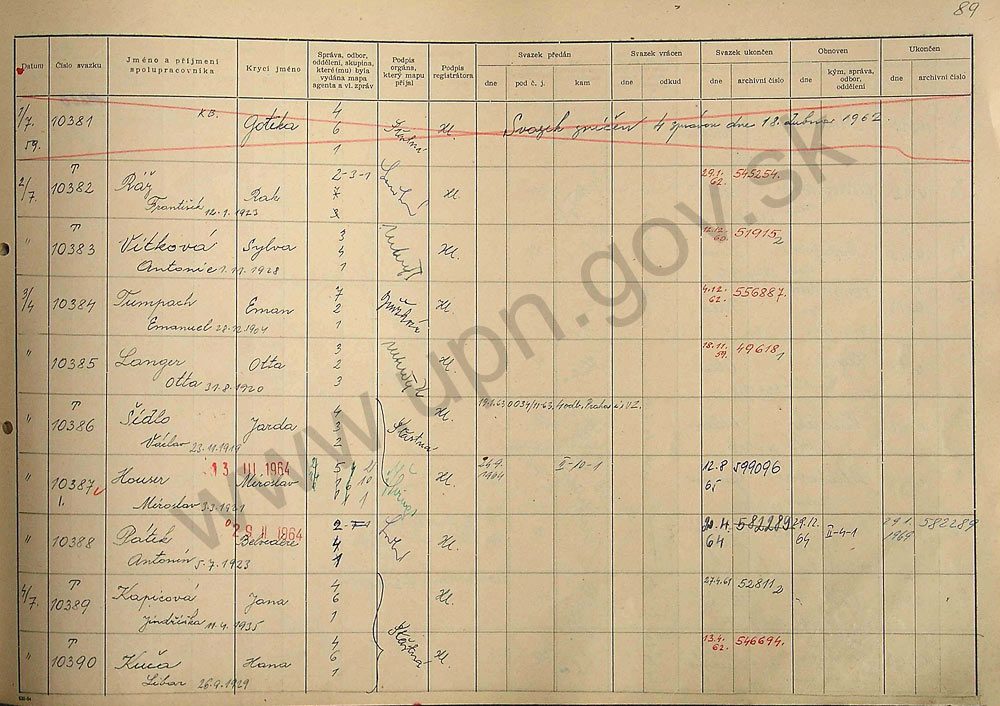 89
Datum
Číslo svazku
Jméno a příjmení
spolupracovníka
Krycí jméno
Správa, odbor,
oddělení, skupina,
které(mu) byla
vydána mapa
agenta a vl. zpráv
Podpis
orgána,
který mapu
přijal
Podpis
registrátora
Svazek předán
dne pod č. j. kam
Svazek vrácen
dne odkud
Svazek ukončen
dne archivní číslo
Obnoven
dne kým, správa,
odbor,
oddělení
Ukončen
dne archivní číslo
1/7.
59.
10381
KB.
Gotika
4
6
1
Šťastná
Hl.
Svazek zničen 4 správou dne 18. dubna 1962.
2/7.
T
10382
Ráž
František 12.1.1923
Rak
2-3-1
7
3
Hl.
29.1.
62.
545254.
"
T
10383
Vítková
Antonie 1.11.1928
Sylva
3
4
1
Hl.
12.12.
60.
51915 2
3/4
10384
Tumpach
Emanuel 28.12.1904
Eman
7
2
1
Hl.
4.12.
62.
556887.
"
10385
Langer
Otta 31.8.1920
Otta
3
2
3
Hl.
18.11.
59.
49618 1
"
T
10386
Šídlo
Václav 23.11.1919
Jarda
4
3
2
Šťastná
Hl.
19.1.63 0034/11-63, 4 odb. Praha
"
10387
1.
Houser
Miroslav 3.3.1921
13 III. 1964
Miroslav
Hl.
24.9.
1964
II-10-1
12.8
65
599096
"
10388
Pátek
Antonín 5.7.1923
29 II 1964
Belvedere
2-7-1
4
1
Hl.
20.4.
64
582289
29.12.
64
II-4-1
29.1.
1964
582289
4/7.
T
10389
Kapicová
Jindřiška 11.4.1935
Jana
4
6
1
Hl.
27.4.61
52811 2
"
T
10390
Kuča
Libor 26.9.1929
Hana
4
6
1
Šťastná
Hl.
13.4.
62.
546694.
www.upn.gov.sk